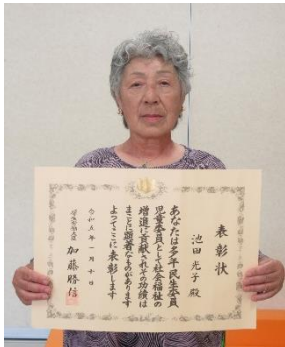 表彰状
池田光子 殿
あなたは多年民生委員
児童委員として社会福祉の
増進に貢献されその功績は
まことに顕著なものがあります
よってここに表彰します
年一月十日
厚生労働大臣 加藤勝信